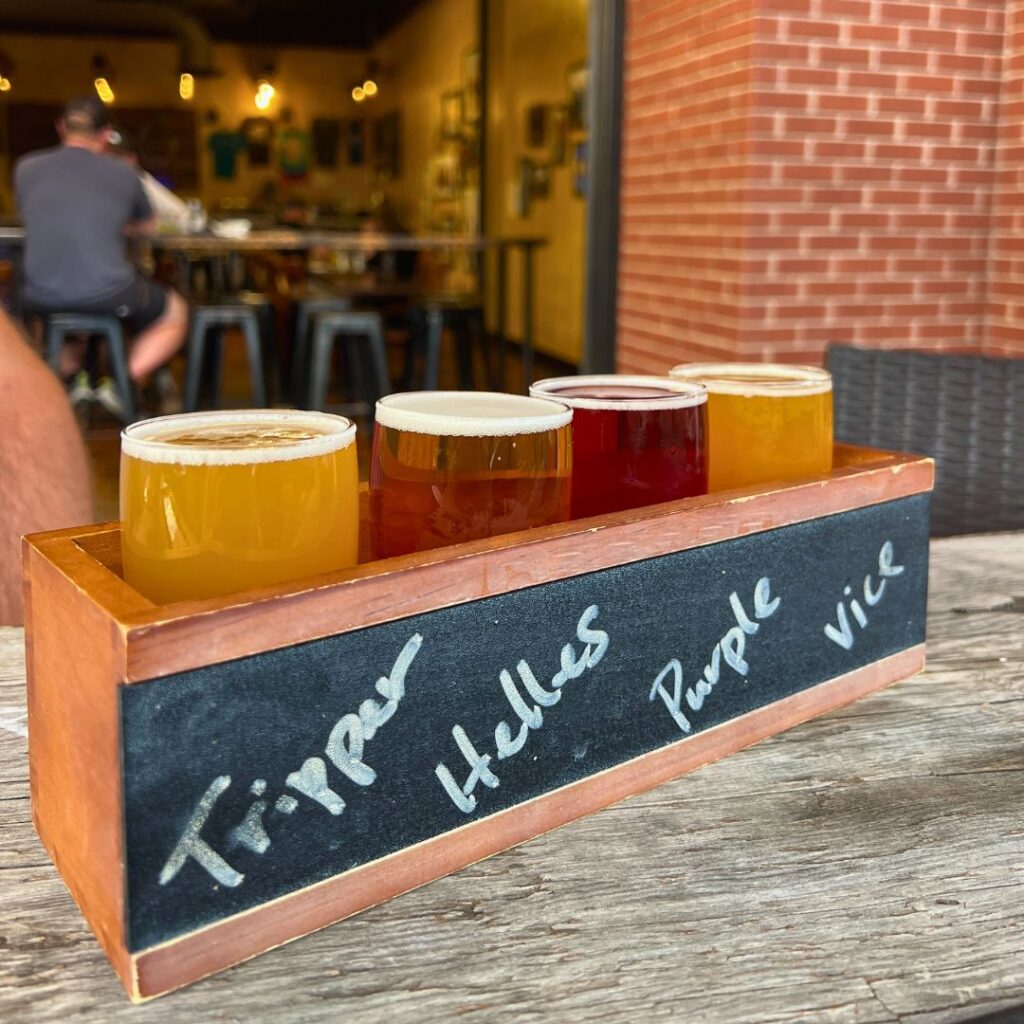 Tripper Helles Purple Vice